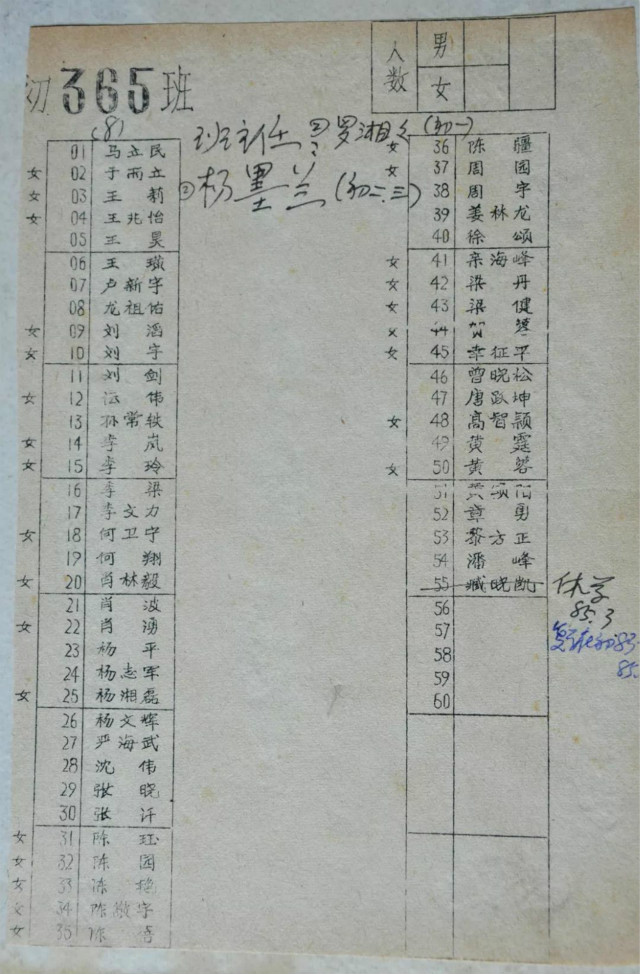 初365班
(8)
人数
男
女
班主任：①罗湘 (初一)
②杨墨兰(初二.三)
01 马立民
女 02 于雨立
女 03 王莉
女 04 王兆怡
05 王昊
06 王璜
07 卢新宇
08 龙祖佑
女 09 刘滔
女 10 刘宇
11 刘剑
女 12 伟
13 孙常轶
女 14 李岚
女 15 李玲
16 李梁
17 李文力
女 18 何卫宁
19 何翔
女 20 肖林毅
21 肖波
女 22 肖湧
23 杨平
24 杨志军
女 25 杨湘磊
26 杨文辉
27 严海武
28 沈伟
29 张晓
30 张汗
女 31 陈珏
女 32 陈园
女 33 陈
女 34 陈敏宇
女 35 陈
女 36 陈疆
女 37 周园
38 周宇
39 姜林龙
40 徐颂
女 41 亲海峰
女 42 梁丹
女 43 梁健
女 44 贺
女 45 幸征平
46 曾晓松
47 唐跃坤
女 48 高智颖
49 黄霆
女 50 黄馨
51 黄颂阳
52 章勇
53 黎方正
54 潘峰
55 臧晓凯 休学
85.3
复学在初83
85.
56
57
58
59
60